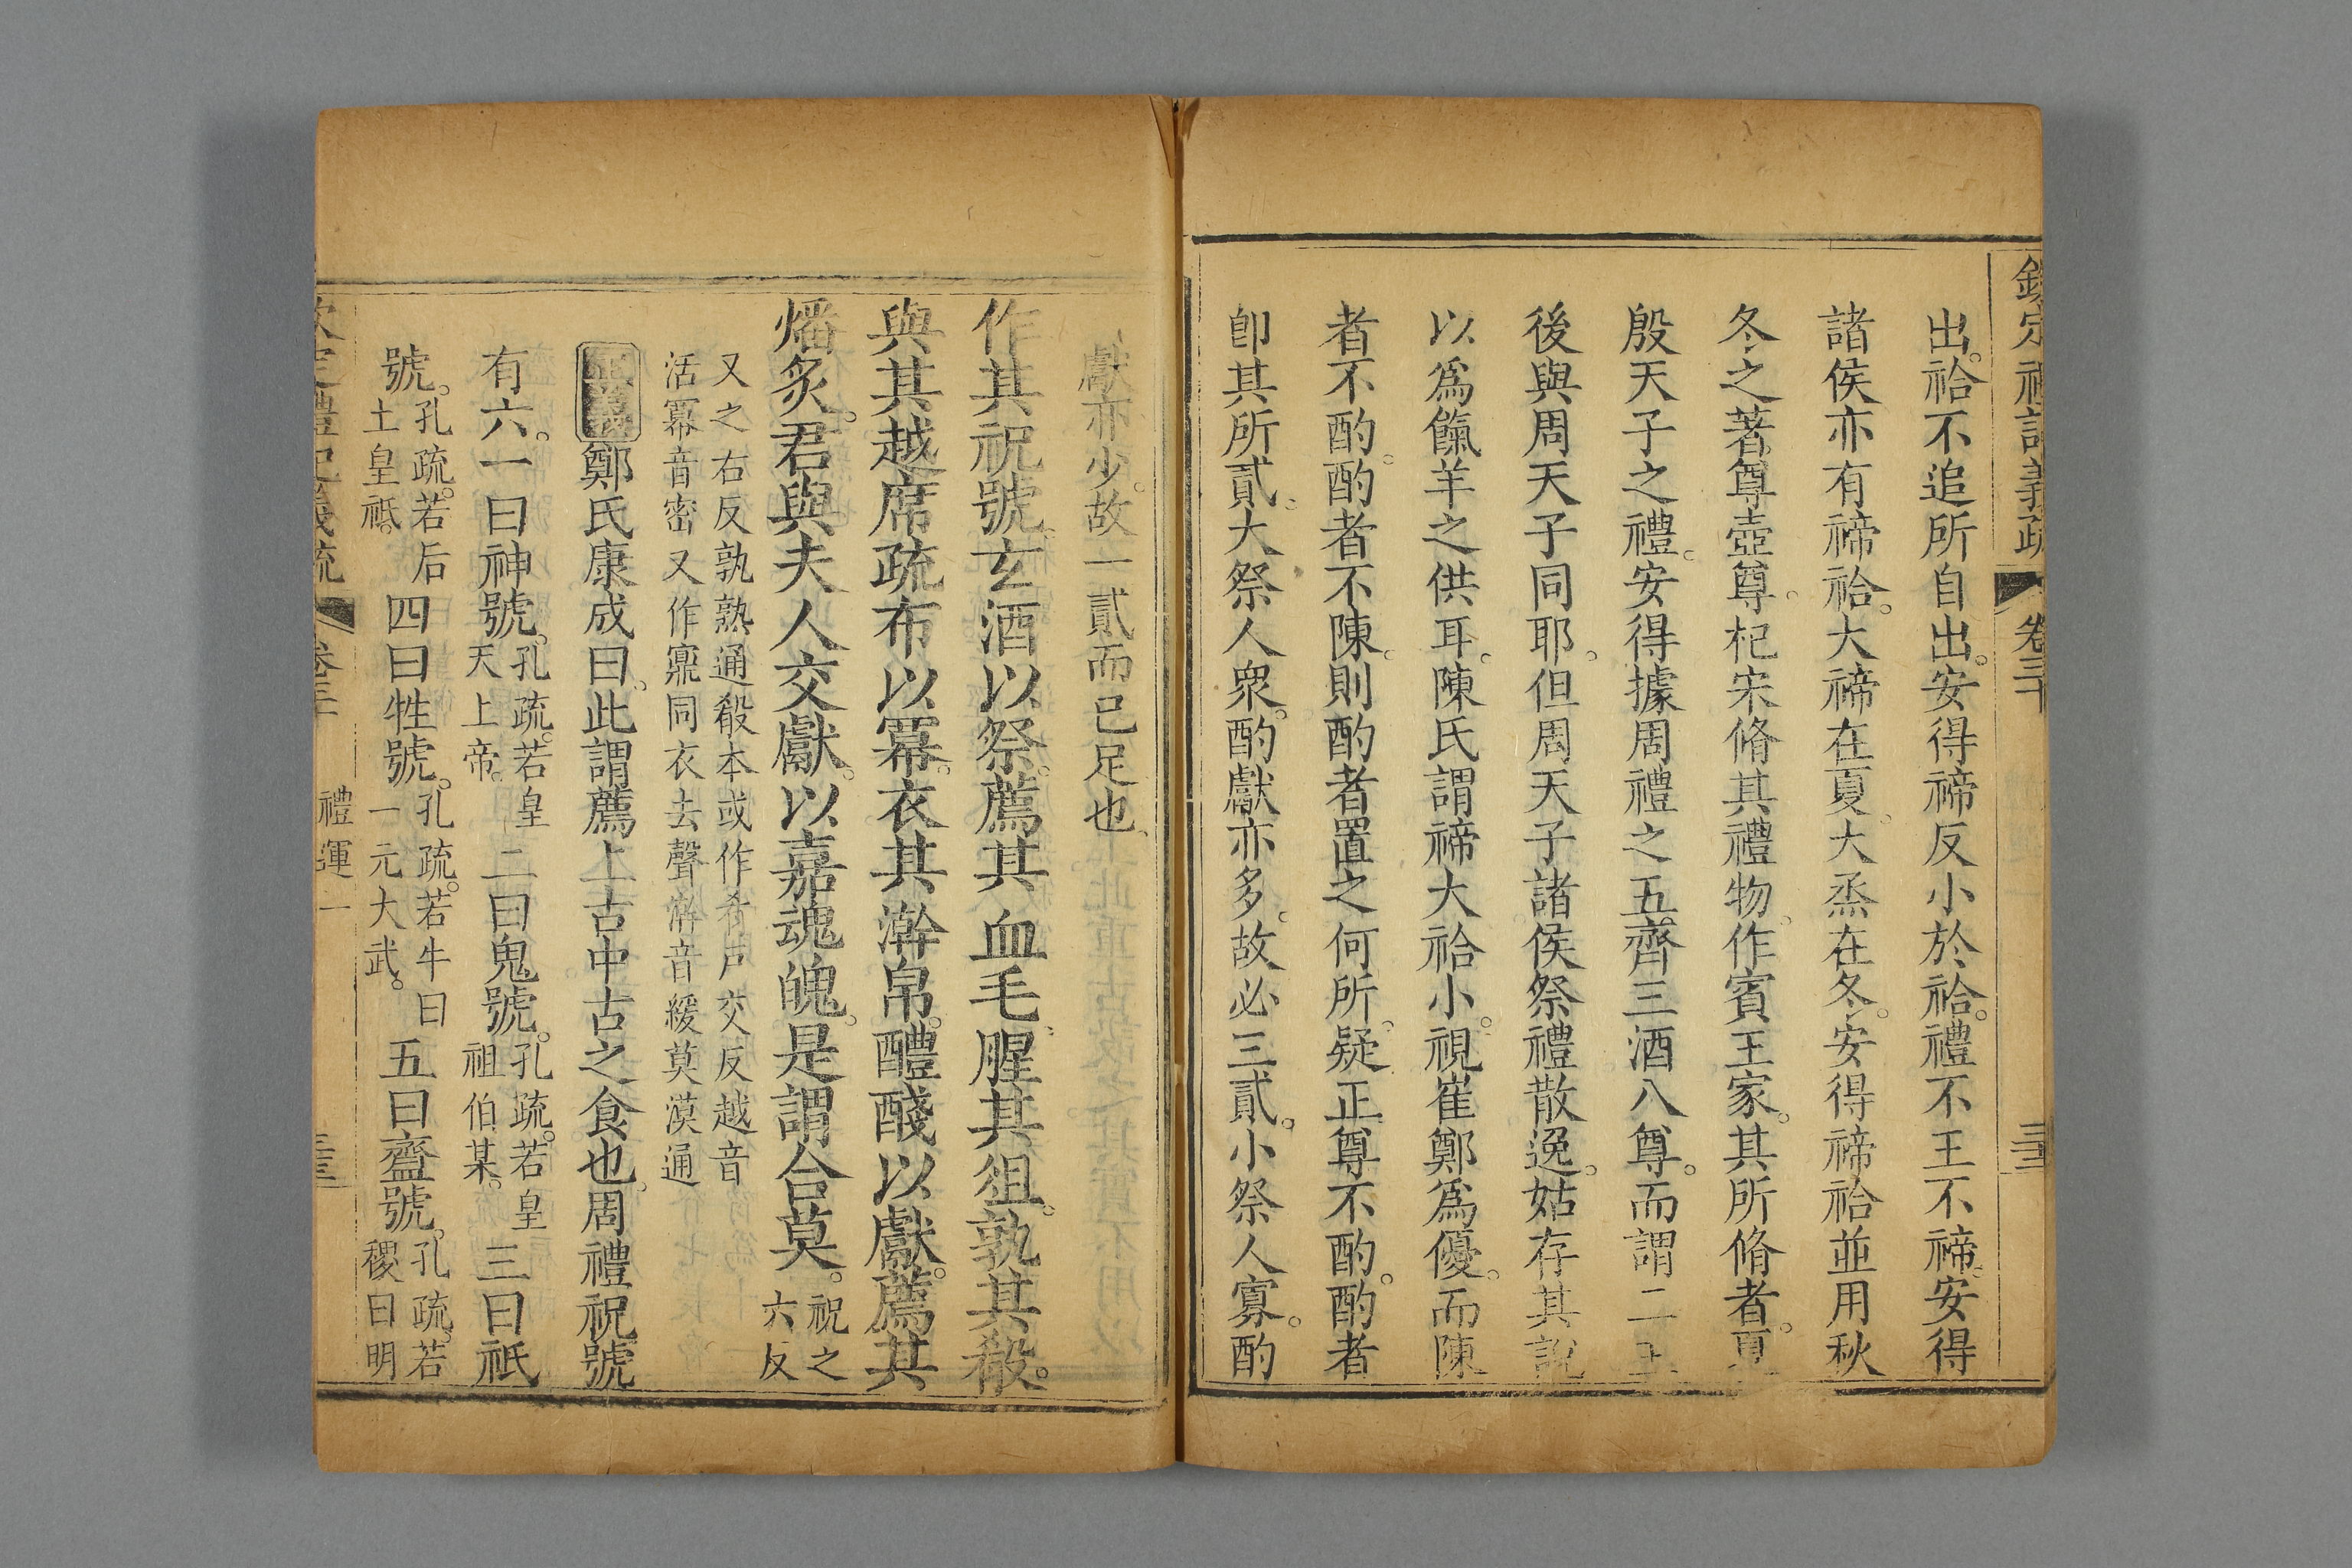 欽定禮記義疏 卷三十
出。祫不追所自出。安得禘反小於祫。禮不王不禘。安得
諸侯亦有禘祫。大禘在夏。大烝在冬。安得禘祫並用秋
冬之著尊壺尊。杞宋脩其禮物。作賓王家。其所脩者。夏
殷天子之禮。安得據周禮之五齊三酒八尊。而謂二王
後與周天子同耶。但周天子諸侯祭禮散逸。姑存其說
以爲餼羊之供耳。陳氏謂禘大祫小。視崔鄭爲優。而陳
者不酌。酌者不陳。則酌者置之何所。疑正尊不酌。酌者
卽其所貳。大祭人衆。酌獻亦多。故必三貳。小祭人寡。酌
獻亦少。故一貳而已足也。
作其祝號。玄酒以祭。薦其血毛。腥其俎。孰其殽。
與其越席。疏布以冪。衣其澣帛。醴醆以獻。薦其
燔炙。君與夫人交獻。以嘉魂魄。是謂合莫。祝之
六反
又之右反孰熟通殽本或作肴戶交反越音
活冪音密又作鼏同衣去聲澣音緩莫漠通
正義鄭氏康成曰。此謂薦上古中古之食也。周禮祝號
有六。一曰神號。孔疏。若皇
天上帝。二曰鬼號。孔疏。若皇
祖伯某。三曰祇
號。孔疏。若后
土皇祗。四曰牲號。孔疏。若牛曰
一元大武。五曰齍號。孔疏。若
稷曰明
欽定禮記義疏 卷三十 禮運一